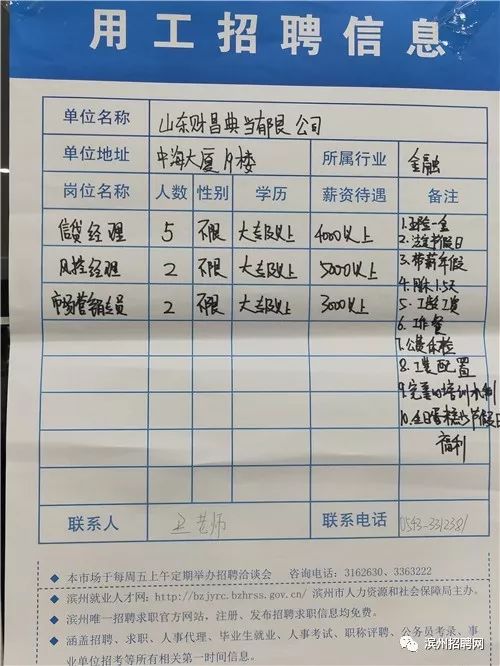 用工招聘信息
单位名称 山东财昌典当有限公司
单位地址 中海大厦19楼 所属行业 金融
岗位名称 人数 性别 学历 薪资待遇 备注
信贷经理 5 不限 大专及以上 4000以上
风控经理 2 不限 大专及以上 5000以上
市场营销专员 2 不限 大专及以上 3000以上
1.五险一金
2.法定节假日
3.带薪年假
4.月休1.5天
5.工龄工资
6.工作餐
7.公费体检
8.工装配置
9.完善的培训机制
10.生日蛋糕以节假日
福利
联系人 王老师 联系电话 0543-3312381
◆ 本市场于每周五上午定期举办招聘洽谈会 咨询电话：3162630、3363222
◆ 滨州就业人才网：http://bzjyrc.bzhrss.gov.cn/ 滨州市人力资源和社会保障局主办。
◆ 滨州唯一招聘求职官方网站，注册、发布招聘求职信息均免费。
◆ 涵盖招聘、求职、人事代理、毕业生就业、人事考试、职称评聘、公务员考录、事
业单位招考等所有相关第一时间信息。
滨州招聘网